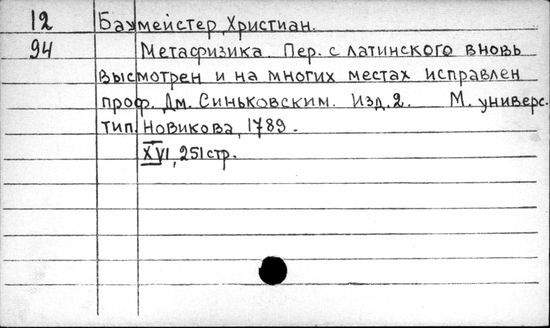 12 Баумейстер, Христиан.
94 Метафизика. Пер. с латинского вновь
высмотрен и на многих местах исправлен
проф. Дм. Синьковским. Изд. 2. М. универс.
тип. Новикова, 1789.
XVI, 251 стр.